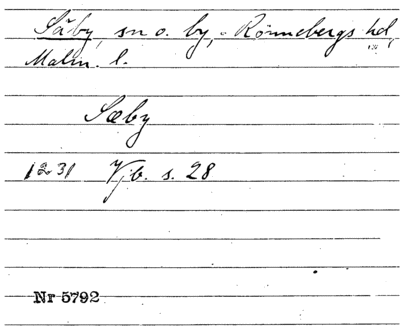 Säby, sn o. by, Rönnebergs hd,
Malm. l.
Sæby
1231 Vjb. s. 28
Nr 5792